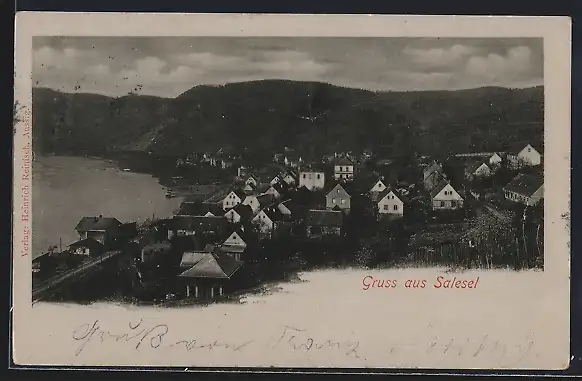 Verlag: Heinrich Reinisch, Aussig.
Gruss aus Salesel
Gruß von Franz